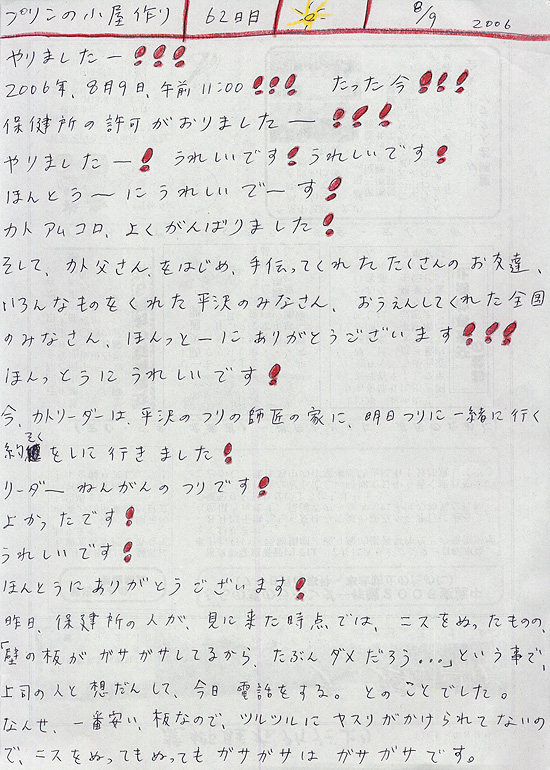 プリンの小屋作り 62日目 8/9 2006
やりましたー!!!
2006年、8月9日、午前11:00!!! たった今!!!
保健所の許可がおりましたー!!!
やりましたー! うれしいです! うれしいです!
ほんとう〜にうれしいでーす!
カトアムコロ、よくがんばりました!
そして、カト父さん、をはじめ、手伝ってくれたたくさんのお友達、
いろんなものをくれた平沢のみなさん、おうえんしてくれた全国
のみなさん、ほんっとーにありがとうございます!!!
ほんっとうにうれしいです!
今、カトリーダーは、平沢のつりの師匠の家に、明日つりに一緒に行く
約そくをしに行きました!
リーダーねんがんのつりです!
よかったです!
うれしいです!
ほんとうにありがとうございます!
昨日、保健所の人が、見に来た時点では、ニスをぬったものの、
「壁の板がガサガサしてるから、たぶんダメだろう...」という事で、
上司の人と想だんして、今日電話をする。とのことでした。
なんせ、一番安い、板なので、ツルツルにヤスリがかけられてないの
で、ニスをぬってもぬってもガサガサはガサガサです。